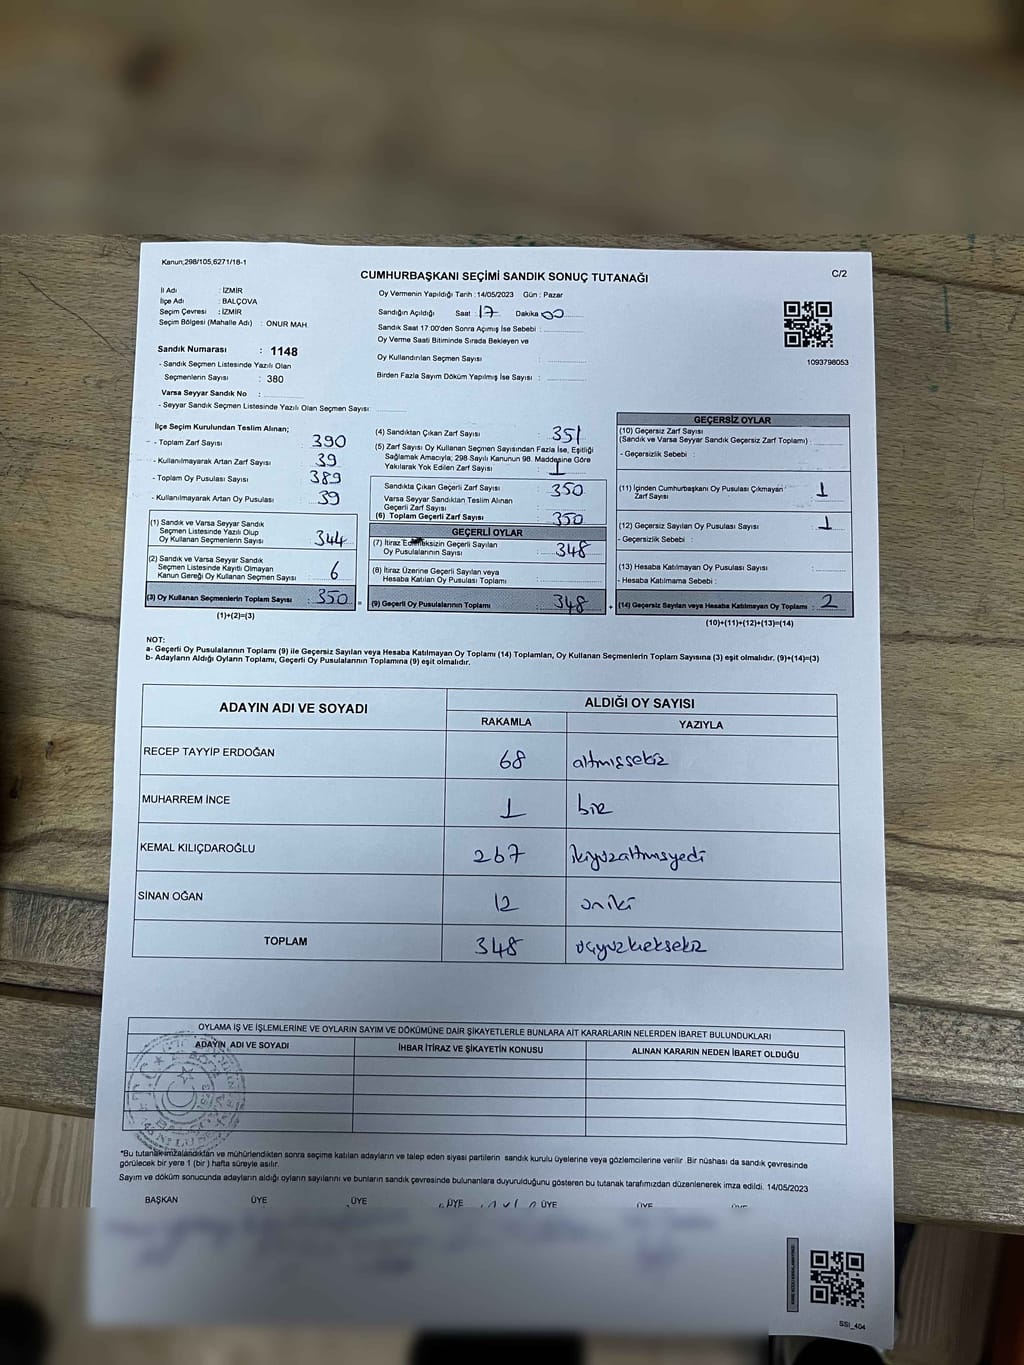 Kanun;298/105,6271/18-1
CUMHURBAŞKANI SEÇİMİ SANDIK SONUÇ TUTANAĞI
C/2
İl Adı : İZMİR
İlçe Adı : BALÇOVA
Seçim Çevresi : İZMİR
Seçim Bölgesi (Mahalle Adı) : ONUR MAH.
Oy Vermenin Yapıldığı Tarih :14/05/2023 Gün : Pazar
Sandığın Açıldığı Saat :17 Dakika :00
Sandık Saat 17:00'den Sonra Açımış İse Sebebi :
Oy Verme Saati Bitiminde Sırada Bekleyen ve
Oy Kullandırılan Seçmen Sayısı :
Birden Fazla Sayım Döküm Yapılmış İse Sayısı :
1093798053
Sandık Numarası : 1148
- Sandık Seçmen Listesinde Yazılı Olan
Seçmenlerin Sayısı : 380
Varsa Seyyar Sandık No :
- Seyyar Sandık Seçmen Listesinde Yazılı Olan Seçmen Sayısı:
İlçe Seçim Kurulundan Teslim Alınan;
- Toplam Zarf Sayısı : 390
- Kullanılmayarak Artan Zarf Sayısı : 39
- Toplam Oy Pusulası Sayısı : 389
- Kullanılmayarak Artan Oy Pusulası : 39
(1) Sandık ve Varsa Seyyar Sandık
Seçmen Listesinde Yazılı Olup
Oy Kullanan Seçmenlerin Sayısı : 344
(2) Sandık ve Varsa Seyyar Sandık
Seçmen Listesinde Kayıtlı Olmayan
Kanun Gereği Oy Kullanan Seçmen Sayısı : 6
(3) Oy Kullanan Seçmenlerin Toplam Sayısı : 350
(1)+(2)=(3)
(4) Sandıktan Çıkan Zarf Sayısı : 351
(5) Zarf Sayısı Oy Kullanan Seçmen Sayısından Fazla İse, Eşitliği
Sağlamak Amacıyla; 298 Sayılı Kanunun 98. Maddesine Göre
Yakılarak Yok Edilen Zarf Sayısı : 1
Sandıkta Çıkan Geçerli Zarf Sayısı : 350
Varsa Seyyar Sandıktan Teslim Alınan
Geçerli Zarf Sayısı :
(6) Toplam Geçerli Zarf Sayısı : 350
GEÇERLİ OYLAR
(7) İtiraz Edilmeksizin Geçerli Sayılan
Oy Pusulalarının Sayısı : 348
(8) İtiraz Üzerine Geçerli Sayılan veya
Hesaba Katılan Oy Pusulası Toplamı :
= (9) Geçerli Oy Pusulalarının Toplamı : 348
GEÇERSİZ OYLAR
(10) Geçersiz Zarf Sayısı
(Sandık ve Varsa Seyyar Sandık Geçersiz Zarf Toplamı) :
- Geçersizlik Sebebi :
(11) İçinden Cumhurbaşkanı Oy Pusulası Çıkmayan
Zarf Sayısı : 1
(12) Geçersiz Sayılan Oy Pusulası Sayısı : 1
- Geçersizlik Sebebi :
(13) Hesaba Katılmayan Oy Pusulası Sayısı :
- Hesaba Katılmama Sebebi :
+ (14) Geçersiz Sayılan veya Hesaba Katılmayan Oy Toplamı : 2
(10)+(11)+(12)+(13)=(14)
NOT:
a- Geçerli Oy Pusulalarının Toplamı (9) ile Geçersiz Sayılan veya Hesaba Katılmayan Oy Toplamı (14) Toplamları, Oy Kullanan Seçmenlerin Toplam Sayısına (3) eşit olmalıdır. (9)+(14)=(3)
b- Adayların Aldığı Oyların Toplamı, Geçerli Oy Pusulalarının Toplamına (9) eşit olmalıdır.
ADAYIN ADI VE SOYADI ALDIĞI OY SAYISI
RAKAMLA YAZIYLA
RECEP TAYYIP ERDOĞAN 68 altmışsekiz
MUHARREM İNCE 1 bir
KEMAL KILIÇDAROĞLU 267 ikiyüzaltmışyedi
SİNAN OĞAN 12 oniki
TOPLAM 348 üçyüzkırksekiz
OYLAMA İŞ VE İŞLEMLERİNE VE OYLARIN SAYIM VE DÖKÜMÜNE DAİR ŞİKAYETLERLE BUNLARA AİT KARARLARIN NELERDEN İBARET BULUNDUKLARI
ADAYIN ADI VE SOYADI İHBAR İTİRAZ VE ŞİKAYETİN KONUSU ALINAN KARARIN NEDEN İBARET OLDUĞU
*Bu tutanak imzalandıktan ve mühürlendikten sonra seçime katılan adayların ve talep eden siyasi partilerin sandık kurulu üyelerine veya gözlemcilerine verilir Bir nüshası da sandık çevresinde
görülecek bir yere 1 (bir ) hafta süreyle asılır.
Sayım ve döküm sonucunda adayların aldığı oyların sayılarını ve bunların sandık çevresinde bulunanlara duyurulduğunu gösteren bu tutanak tarafımızdan düzenlenerek imza edildi. 14/05/2023
BAŞKAN ÜYE ÜYE ÜYE ÜYE ÜYE ÜYE
SSI_404